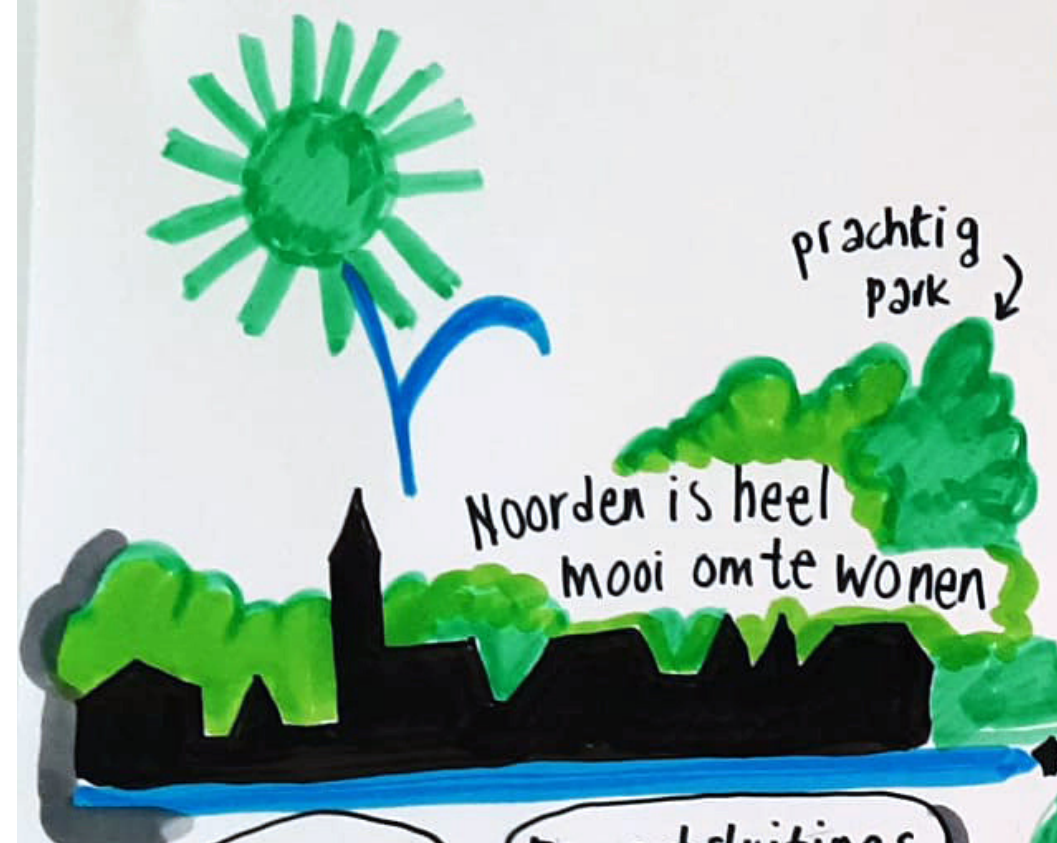 prachtig
park
Noorden is heel
mooi om te wonen